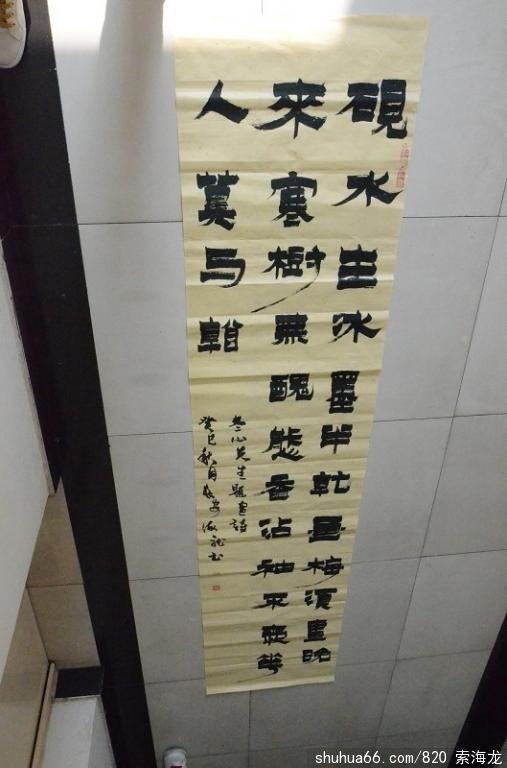 硯水生冰墨半乾畫梅須畫晚
來寒樹無醜態香沾袖不愛華
人莫与看
冬心先生題畫詩
癸巳秋月長安海龍书
shuhua66.com/820 索海龙